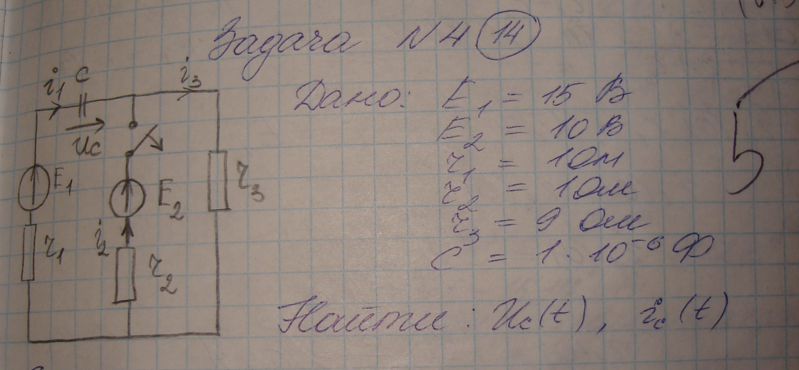 Задача N4 (14)
i₁ C i₃
Uc
E₁ E₂ r₃
r₁ i₂ r₂
Дано: E₁ = 15 В
E₂ = 10 В
r₁ = 1 Ом
r₂ = 1 Ом
r₃ = 9 Ом
C = 1·10⁻⁶ Ф
5
Найти: Uc(t), ic(t)